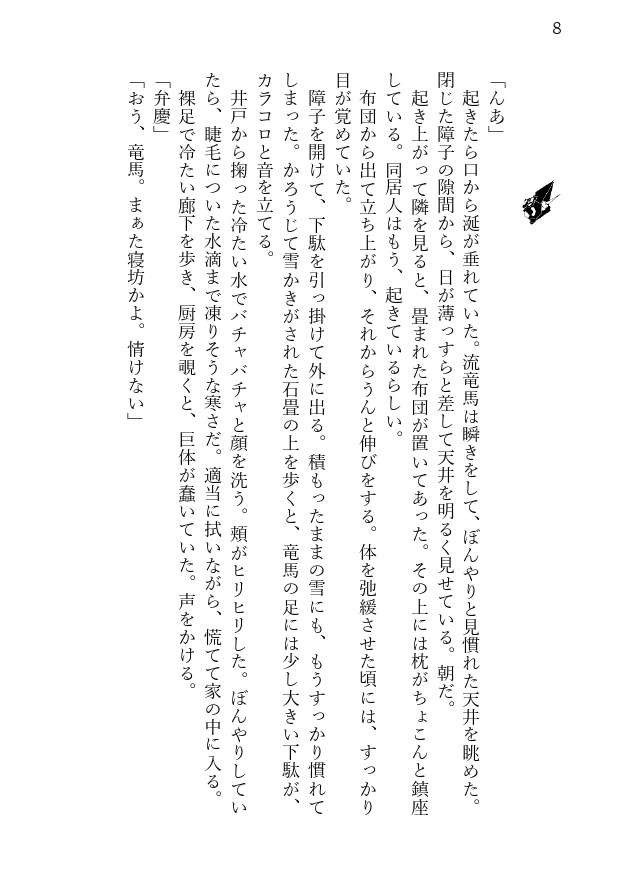 8
「んあ」
　起きたら口から涎が垂れていた。流竜馬は瞬きをして、ぼんやりと見慣れた天井を眺めた。
閉じた障子の隙間から、日が薄っすらと差して天井を明るく見せている。朝だ。
　起き上がって隣を見ると、畳まれた布団が置いてあった。その上には枕がちょこんと鎮座
している。同居人はもう、起きているらしい。
　布団から出て立ち上がり、それからうんと伸びをする。体を弛緩させた頃には、すっかり
目が覚めていた。
　障子を開けて、下駄を引っ掛けて外に出る。積もったままの雪にも、もうすっかり慣れて
しまった。かろうじて雪かきがされた石畳の上を歩くと、竜馬の足には少し大きい下駄が、
カラコロと音を立てる。
　井戸から掬った冷たい水でバチャバチャと顔を洗う。頬がヒリヒリした。ぼんやりしてい
たら、睫毛についた水滴まで凍りそうな寒さだ。適当に拭いながら、慌てて家の中に入る。
　裸足で冷たい廊下を歩き、厨房を覗くと、巨体が蠢いていた。声をかける。
「弁慶」
「おう、竜馬。まぁた寝坊かよ。情けない」